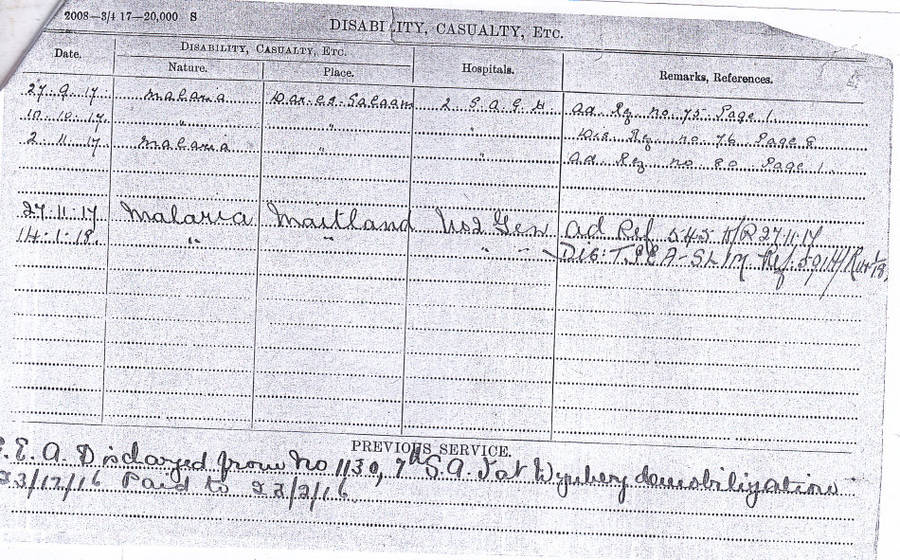 2008—3/4 17—20,000 S
DISABILITY, CASUALTY, ETC.
Date. DISABILITY, CASUALTY, ETC. Hospitals. Remarks, References.
Nature. Place.
27.9.17 Malaria Dar.es.Salaam 2 S.A.G.H. ad. Rg no 75 Page 1.
10.10.17. " " " Dis Rg no 76 Page 8
2.11.17 Malaria " " ad Rg no 80 Page 1.
27.11.17 Malaria Maitland No2 Gen ad Ref 545 27.11.17
14.1.18. " " " " Dis:
PREVIOUS SERVICE.
E. A. Discharged from No 1130, 7th S.A. Inf at Wynberg demobilization
23/12/16 Paid to 23/2/16